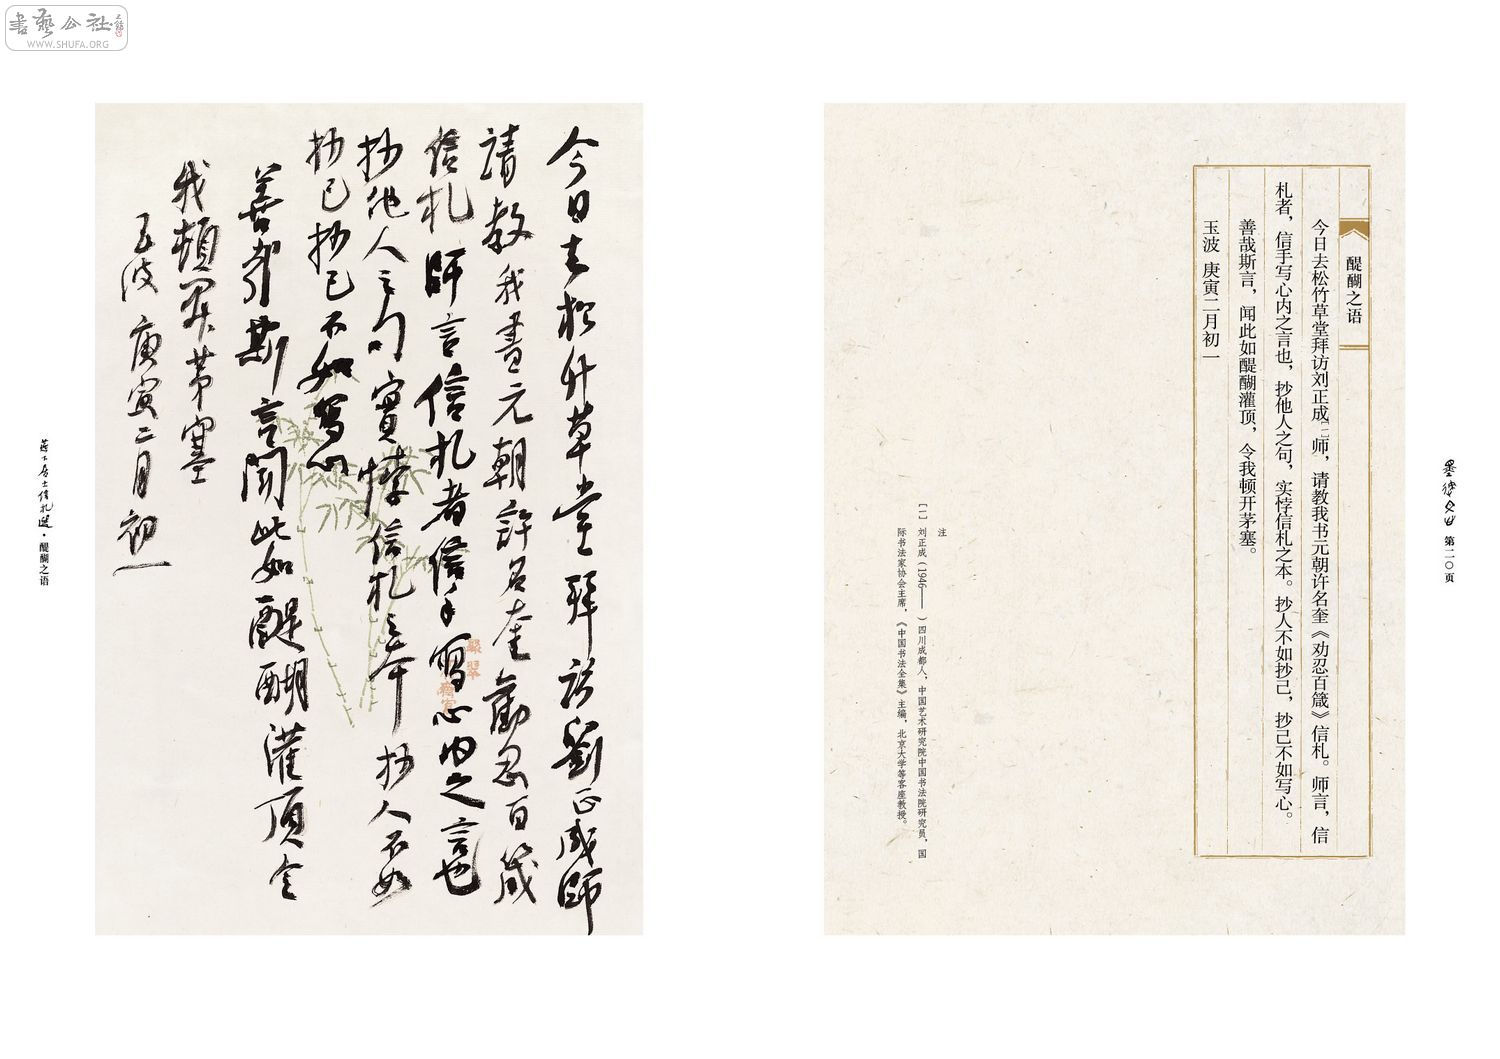 書藝公社
WWW.SHUFA.ORG
第二〇页
醍醐之语
今日去松竹草堂拜访刘正成[一]师，请教我书元朝许名奎《劝忍百箴》信札。师言，信
札者，信手写心内之言也，抄他人之句，实悖信札之本。抄人不如抄己，抄己不如写心。
善哉斯言，闻此如醍醐灌顶，令我顿开茅塞。
玉波 庚寅二月初一
注
[一] 刘正成（1946—— ）四川成都人，中国艺术研究院中国书法院研究员，国
际书法家协会主席，《中国书法全集》主编，北京大学等客座教授。
今日去松竹草堂拜訪劉正成師
請教我書元朝許名奎勸忍百箴
信札師言信札者信手寫心内之言也
抄他人之句實悖信札之本抄人不如
抄己抄己不如寫心
善哉斯言聞此如醍醐灌頂令
我頓開茅塞
玉波庚寅二月初一
居士信札選·醍醐之语